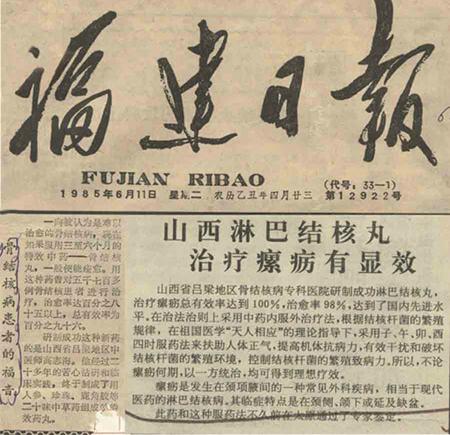 福建日报
FUJIAN RIBAO
(代号：33—1)
1985年6月11日 星期二 农历乙丑年四月廿三 第12922号
骨结核病患者的福音
一向被认为是难以
治愈的骨结核病，现在
如果服用三至六个月的
特效中药——骨结核
丸，一般便能痊愈。用
这种药曾对五千七百多
例骨结核患者进行治
疗，治愈率达百分之八
十五以上，总有效率为
百分之九十六。
研制成功这种新药
的是山西省吕梁地区中
医师高忠海。他经过二
十多年的苦心钻研和临
床实践，终于制成了用
人参、珍珠、鹿角胶等
二十味中草药组成的特
效药丸。
山西淋巴结核丸
治疗瘰疬有显效
山西省吕梁地区骨结核病专科医院研制成功淋巴结核丸，
治疗瘰疬总有效率达到100%，治愈率98%，达到了国内先进水
平。在治法治则上采用中药内服外治疗法，根据结核杆菌的繁殖
规律，在祖国医学“天人相应”的理论指导下，采用子、午、卯、酉
四时服药法来扶助人体正气，提高机体抗病力，有效干扰和破坏
结核杆菌的繁殖环境，控制结核杆菌的繁殖致病力。所以，不论
瘰疬何期，以一方统治，均可得到理想疗效。
瘰疬是发生在颈项腋间的一种常见外科疾病，相当于现代
医药的淋巴结核病。其临症特点是在颈侧、颌下或延及缺盆。
此药和这种服药法不久前在太原通过了专家鉴定。